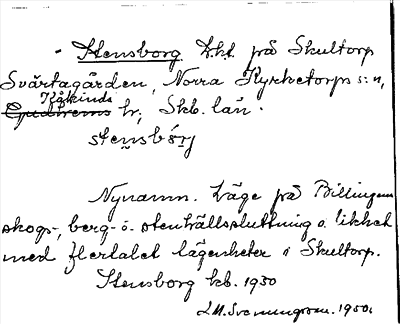 - Stensborg lht. på Skultorp
Svärtagården, Norra Kyrketorps s:n,
Kåkinds
Gudhems hr, Skb. län.
stensbǫrj
Nynamn. Läge på Billingens
skogs-, berg- o. stenhällssluttning o. likhet
med flertalet lägenheter i Skultorp.
Stensborg kb. 1930
1950.